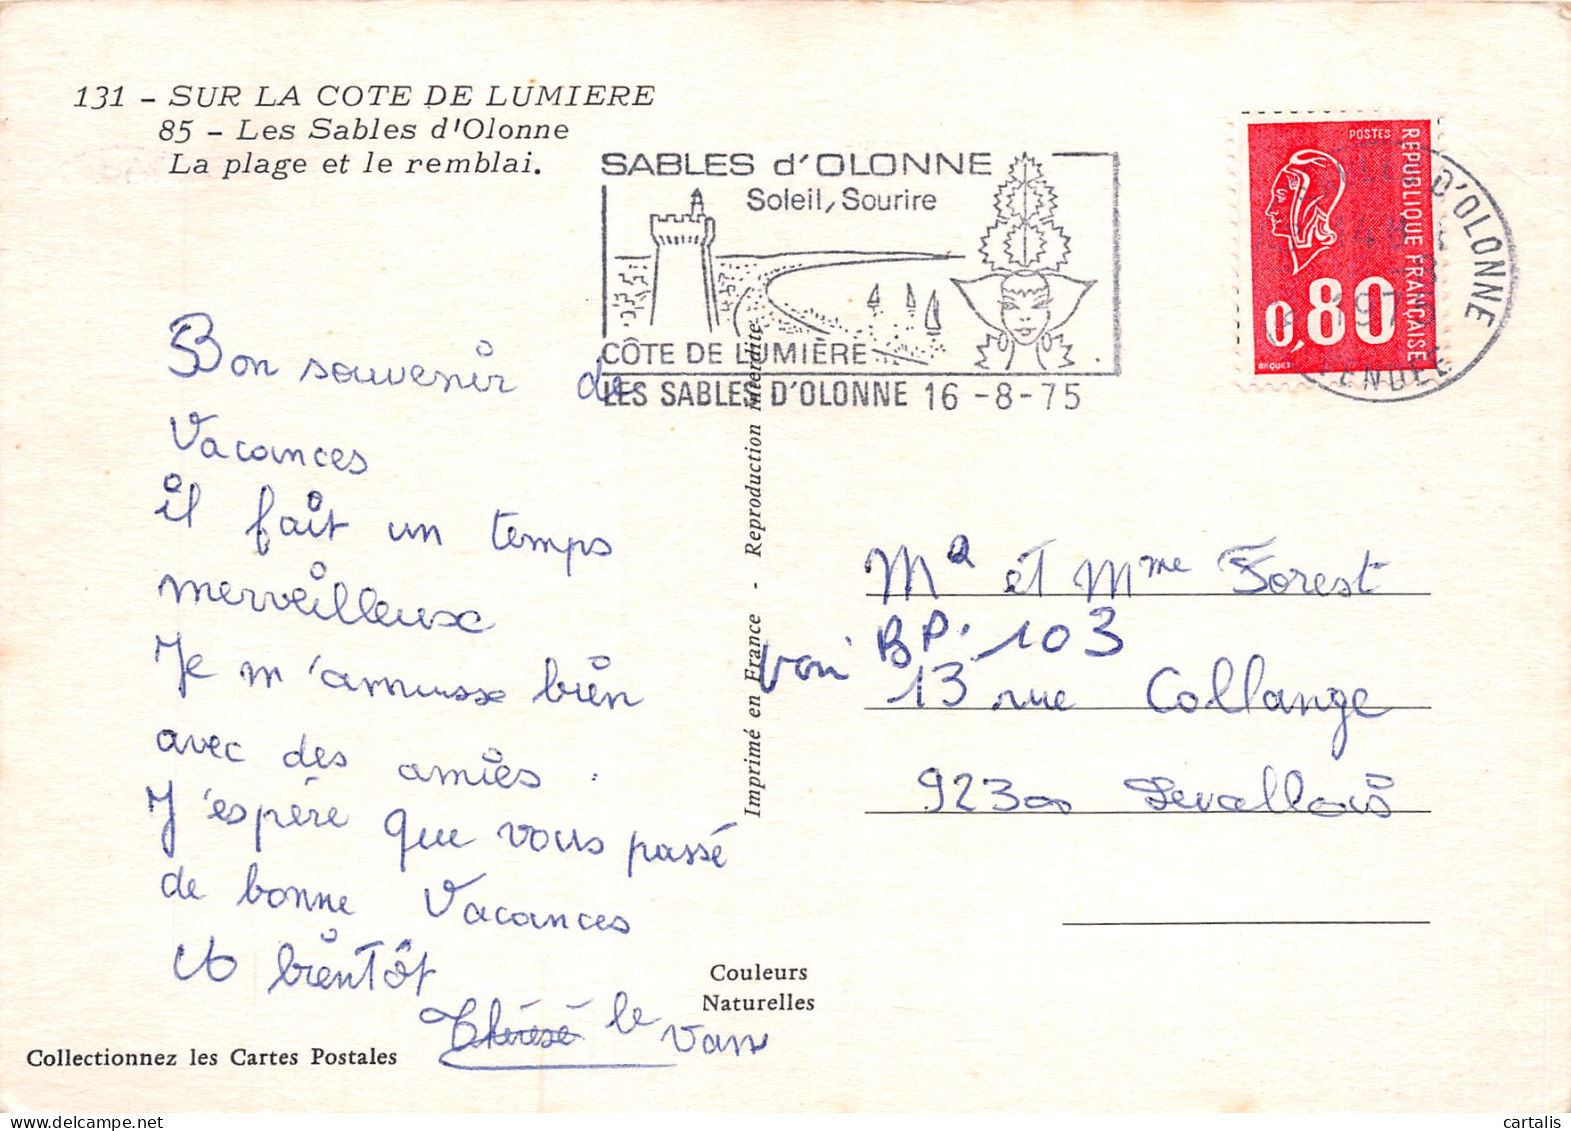 131 - SUR LA COTE DE LUMIERE
85 - Les Sables d'Olonne
La plage et le remblai.
SABLES d'OLONNE
Soleil, Sourire
CÔTE DE LUMIÈRE
LES SABLES D'OLONNE 16-8-75
POSTES
REPUBLIQUE FRANÇAISE
0,80
BEQUET
D'OLONNE
1975
VENDEE
Bon souvenir de
Vacances
il fait un temps
merveilleux
Je m'amuse bien
avec des amies.
J'espère que vous passé
de bonne Vacances
A bientôt
Thérèse le
Imprimé en France - Reproduction interdite
Mr et Mme Forest
BP. 103
13 rue Collange
92300 Levallois
Couleurs
Naturelles
Collectionnez les Cartes Postales
cartalis